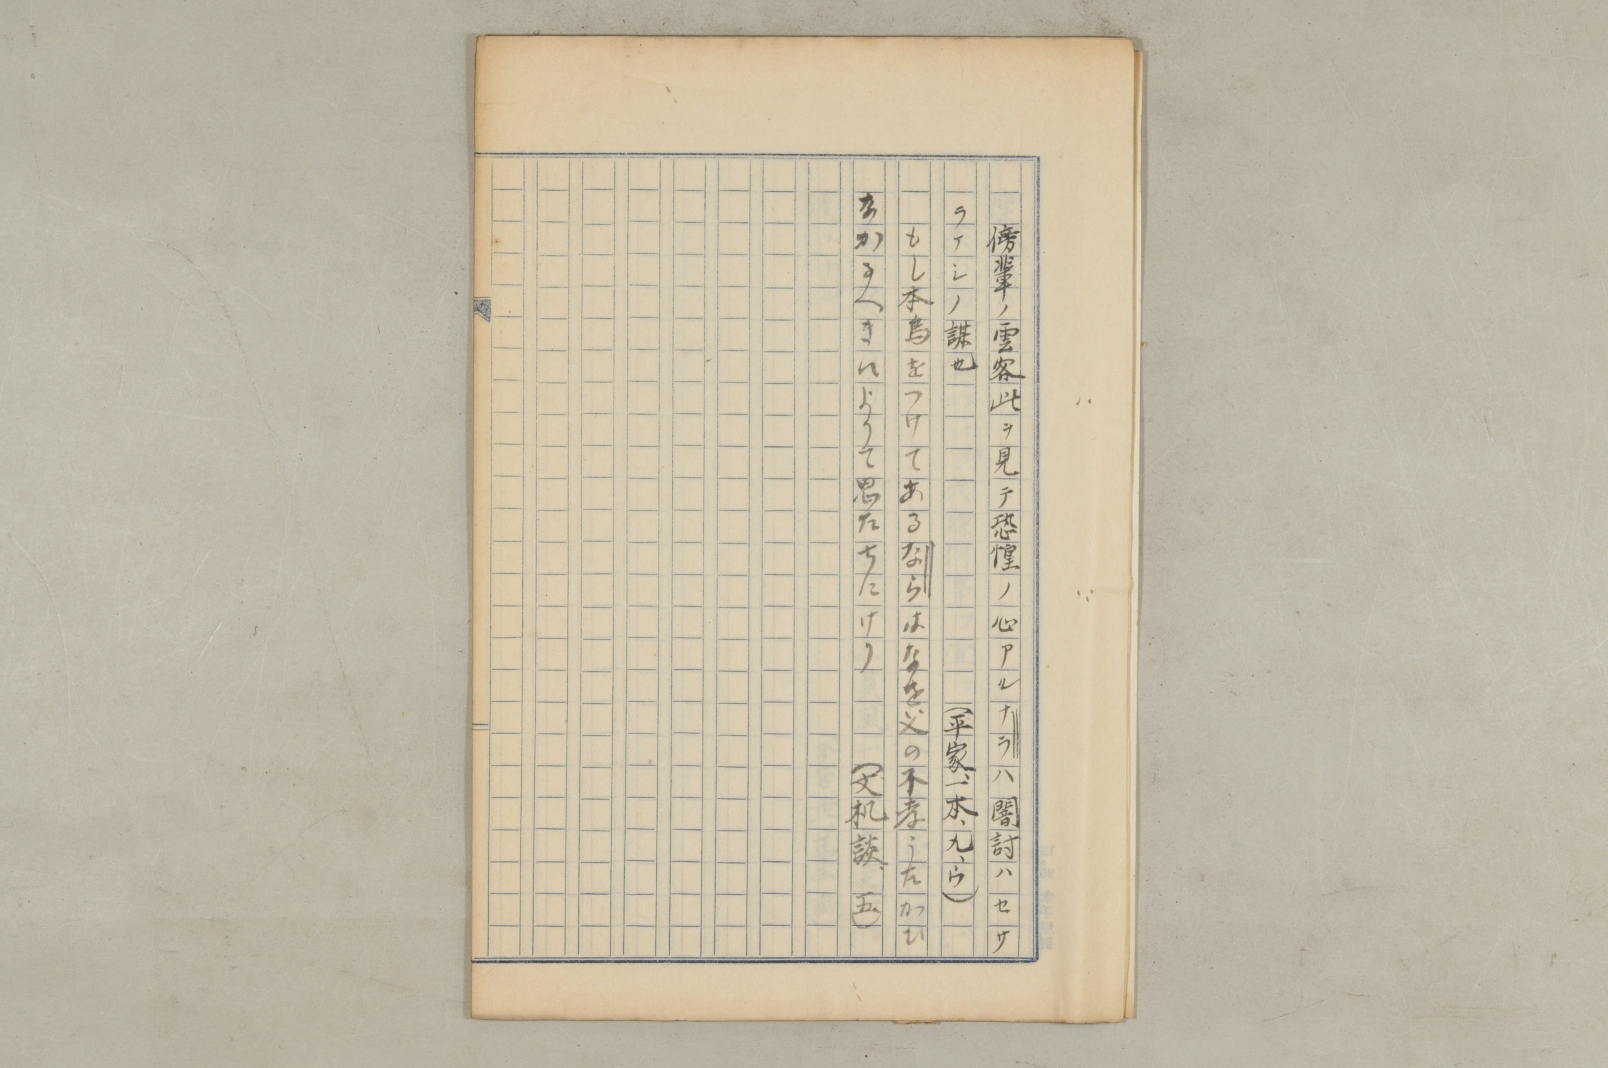 傍輩ノ雲客此ヲ見テ恐惶ノ心アルナラハ闇討ハセサ
ランノ謀也　(平家、一本、九、ウ)
もし本鳥をつけてあるならはなを父の不孝うたかひ
なかるへきによりて思たちにけり　(文机談、五)